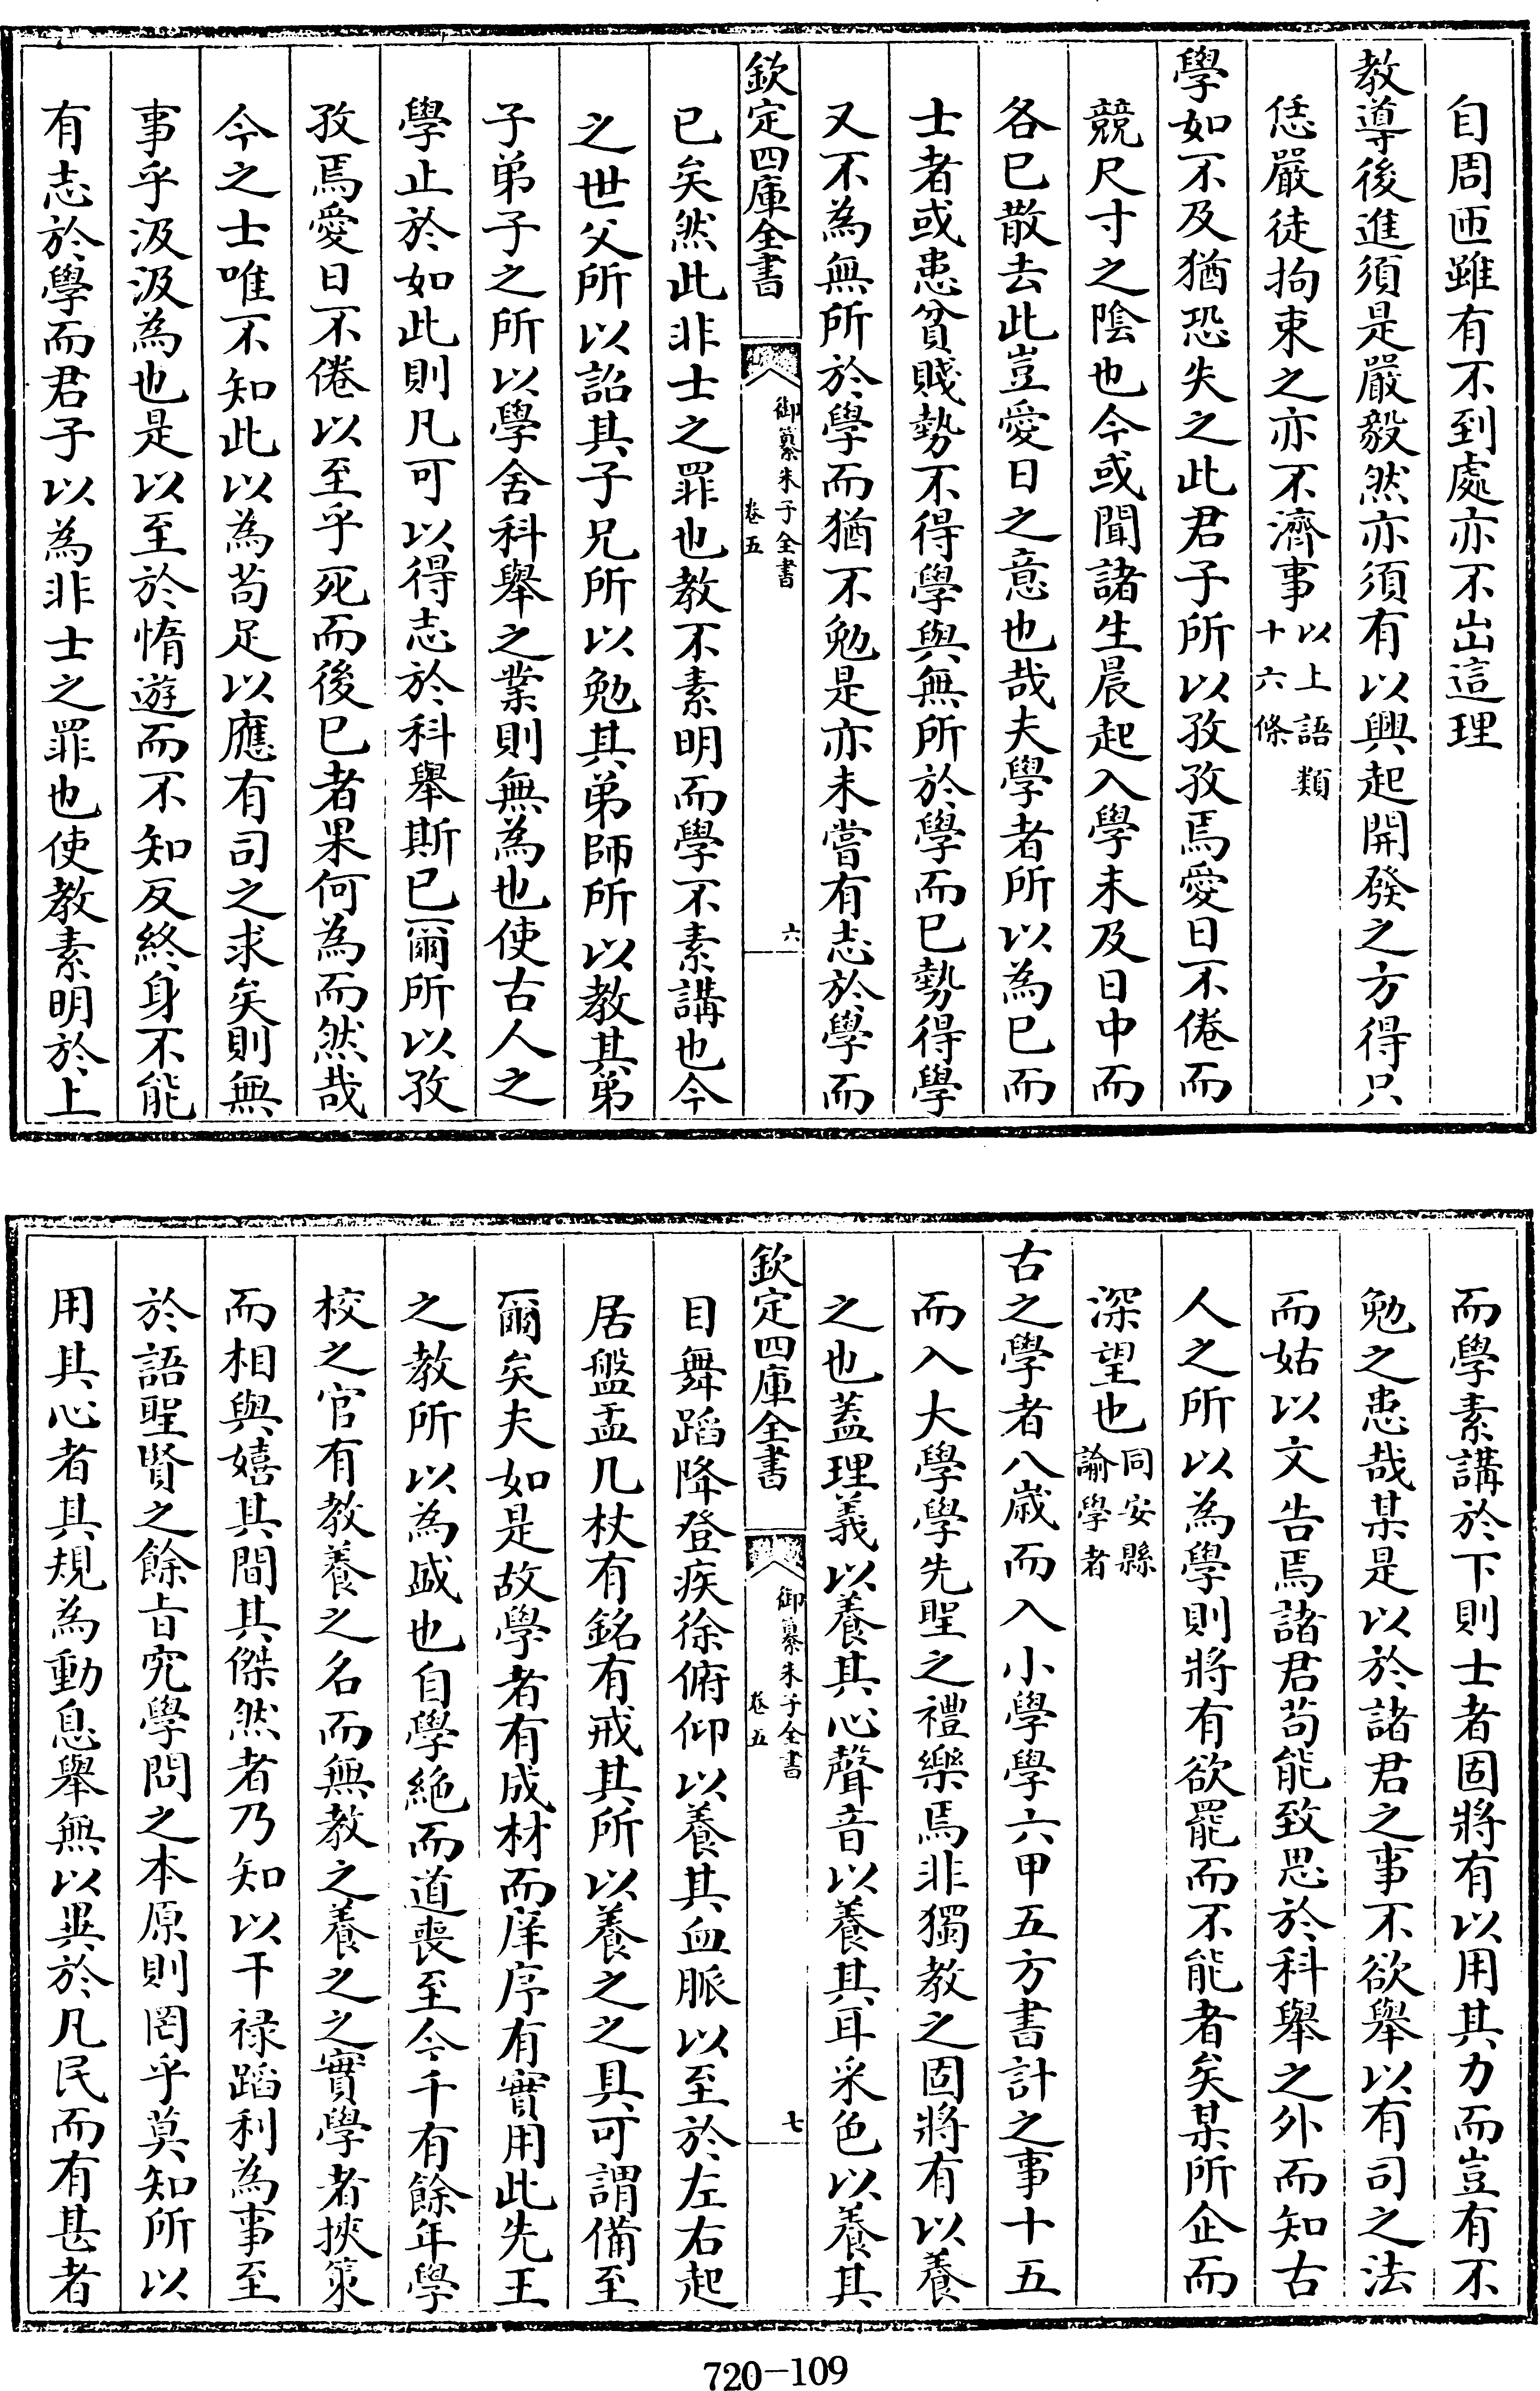 自周匝雖有不到處亦不出這理
教導後進須是嚴毅然亦須有以興起開發之方得只
恁嚴徒拘束之亦不濟事以上語類十六條
學如不及猶恐失之此君子所以孜孜焉愛日不倦而
競尺寸之陰也今或聞諸生晨起入學未及日中而
各已散去此豈愛日之意也哉夫學者所以為已而
士者或患貧賤勢不得學與無所於學而已勢得學
又不為無所於學而猶不勉是亦未嘗有志於學而
欽定四庫全書
御纂朱子全書
卷五
六
已矣然此非士之罪也教不素明而學不素講也今
之世父所以詔其子兄所以勉其弟師所以教其弟
子弟子之所以學舍科舉之業則無為也使古人之
學止於如此則凡可以得志於科舉斯已爾所以孜
孜焉愛日不倦以至乎死而後已者果何為而然哉
今之士唯不知此以為苟足以應有司之求矣則無
事乎汲汲為也是以至於惰遊而不知反終身不能
有志於學而君子以為非士之罪也使教素明於上
而學素講於下則士者固將有以用其力而豈有不
勉之患哉某是以於諸君之事不欲舉以有司之法
而姑以文告焉諸君苟能致思於科舉之外而知古
人之所以為學則將有欲罷而不能者矣某所企而
深望也同安縣諭學者
古之學者八歲而入小學學六甲五方書計之事十五
而入大學學先聖之禮樂焉非獨教之固將有以養
之也蓋理義以養其心聲音以養其耳采色以養其
欽定四庫全書
御纂朱子全書
卷五
七
目舞蹈降登疾徐俯仰以養其血脈以至於左右起
居盤盂几杖有銘有戒其所以養之之具可謂備至
爾矣夫如是故學者有成材而庠序有實用此先王
之教所以為盛也自學絶而道喪至今千有餘年學
校之官有教養之名而無教之養之之實學者挾策
而相與嬉其間其傑然者乃知以干祿蹈利為事至
於語聖賢之餘旨究學問之本原則罔乎莫知所以
用其心者其規為動息舉無以異於凡民而有甚者
720-109